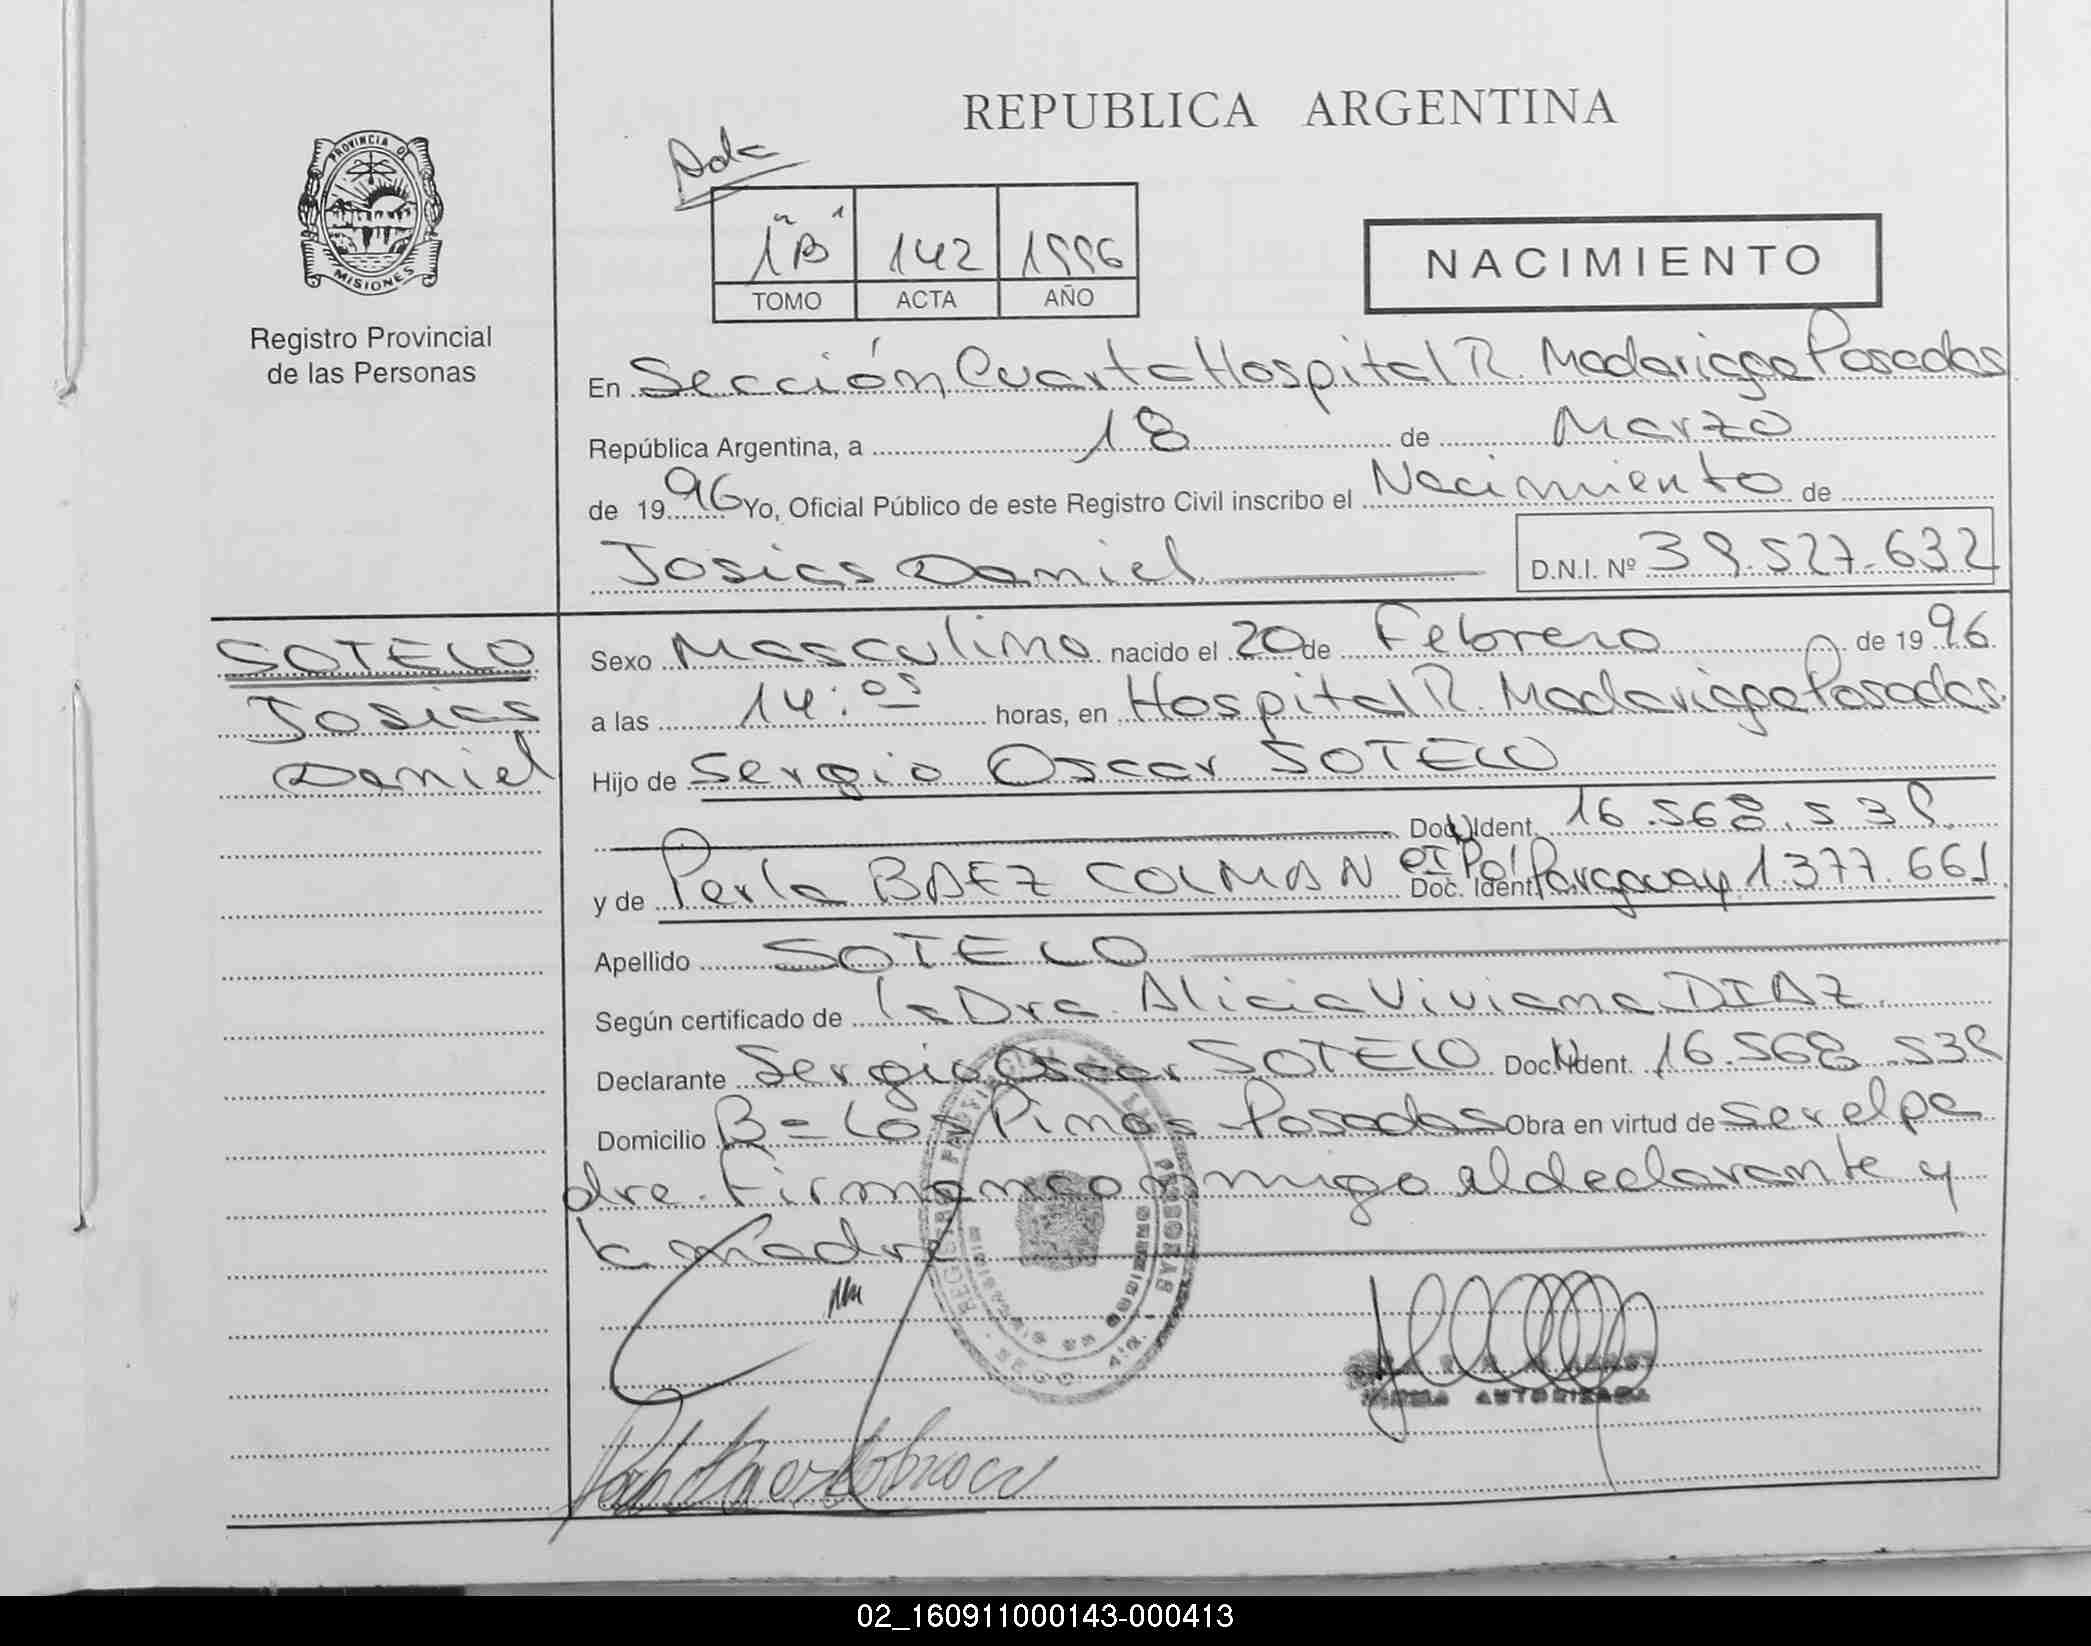 REPUBLICA ARGENTINA
PROVINCIA DE
MISIONES
Registro Provincial
de las Personas
1ª "B" 142 1996
TOMO ACTA AÑO
NACIMIENTO
En Sección Cuarta Hospital R. Madariaga Posadas
República Argentina, a 18 de Marzo
de 1996 Yo, Oficial Público de este Registro Civil inscribo el Nacimiento de
Josias Daniel D.N.I. Nº 39.527.632
SOTELO
Josias
Daniel
Sexo Masculino nacido el 20 de Febrero de 1996.
a las 14:05 horas, en Hospital R. Madariaga Posadas.
Hijo de Sergio Oscar SOTELO
Doc. Ident. 16.568.539.
y de Perla BAEZ COLMAN Doc. Ident. CI Pol Paraguay 1.377.661.
Apellido SOTELO
Según certificado de la Dra. Alicia Viviana DIAZ.
Declarante Sergio Oscar SOTELO Doc. Ident. 16.568.539
Domicilio Bº Los Pinos Posadas Obra en virtud de ser el pa
dre. Firman conmigo el declarante y
la madre
FIRMA AUTORIZADA
02_160911000143-000413